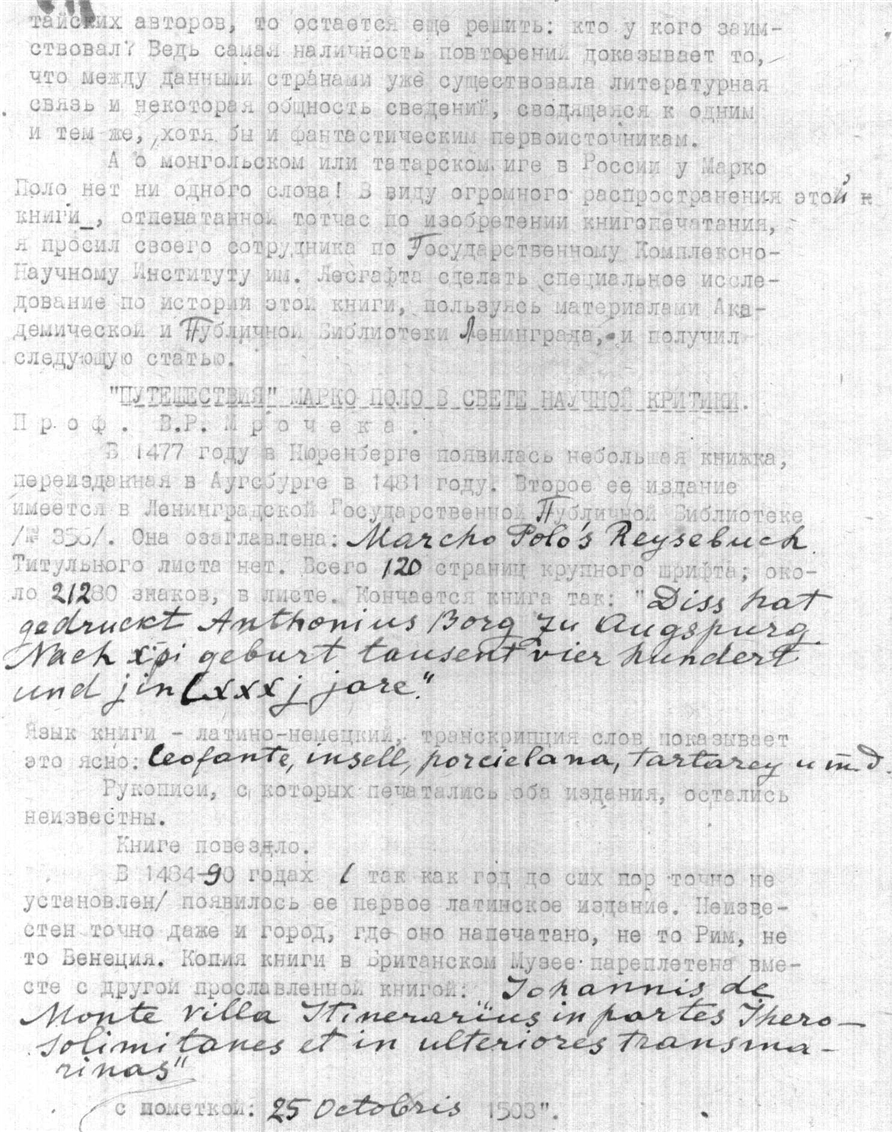 тайских авторов, то остается еще решить: кто у кого заим-
ствовал? Ведь самая наличность повторений доказывает то,
что между данными странами уже существовала литературная
связь и некоторая общность сведений, сводящаяся к одним
и тем же, хотя бы и фантастическим первоисточникам.
А о монгольском или татарском иге в России у Марко
Поло нет ни одного слова! В виду огромного распространения этой
книги, отпечатанной тотчас по изобретении книгопечатания,
я просил своего сотрудника по Государственному Комплексно-
Научному Институту им. Лесгафта сделать специальное иссле-
дование по истории этой книги, пользуясь материалами Ака-
демической и Публичной Библиотеки Ленинграда, и получил
следующую статью.
"ПУТЕШЕСТВИЯ" МАРКО ПОЛО В СВЕТЕ НАУЧНОЙ КРИТИКИ.
Проф. В.Р. Мрочека.
В 1477 году в Нюренберге появилась небольшая книжка,
переизданная в Аугсбурге в 1481 году. Второе ее издание
имеется в Ленинградской Государственной Публичной Библиотеке
/№ 356/. Она озаглавлена: Marcho Polo's Reysebuch
Титульного листа нет. Всего 120 страниц крупного шрифта; око-
ло 21280 знаков, в листе. Кончается книга так: "Diss hat
gedruckt Anthonius Borg zu Augspurg
Nach xpi geburt tausent vier hundert
und jin lxxxj jare."
Язык книги - латино-немецкий, транскрипция слов показывает
это ясно: leofante, insell, porcielana, tartarey и т.д.
Рукописи, с которых печатались оба издания, остались
неизвестны.
Книге повезло.
В 1484-90 годах / так как год до сих пор точно не
установлен/ появилось ее первое латинское издание. Неизве-
стен точно даже и город, где оно напечатано, не то Рим, не
то Венеция. Копия книги в Британском Музее переплетена вме-
сте с другой прославленной книгой: Johannis de
Monte villa Itinerarius in partes Ihero-
solimitanes et in ulteriores transma-
rinas"
с пометкой: 25 Octobris 1503".